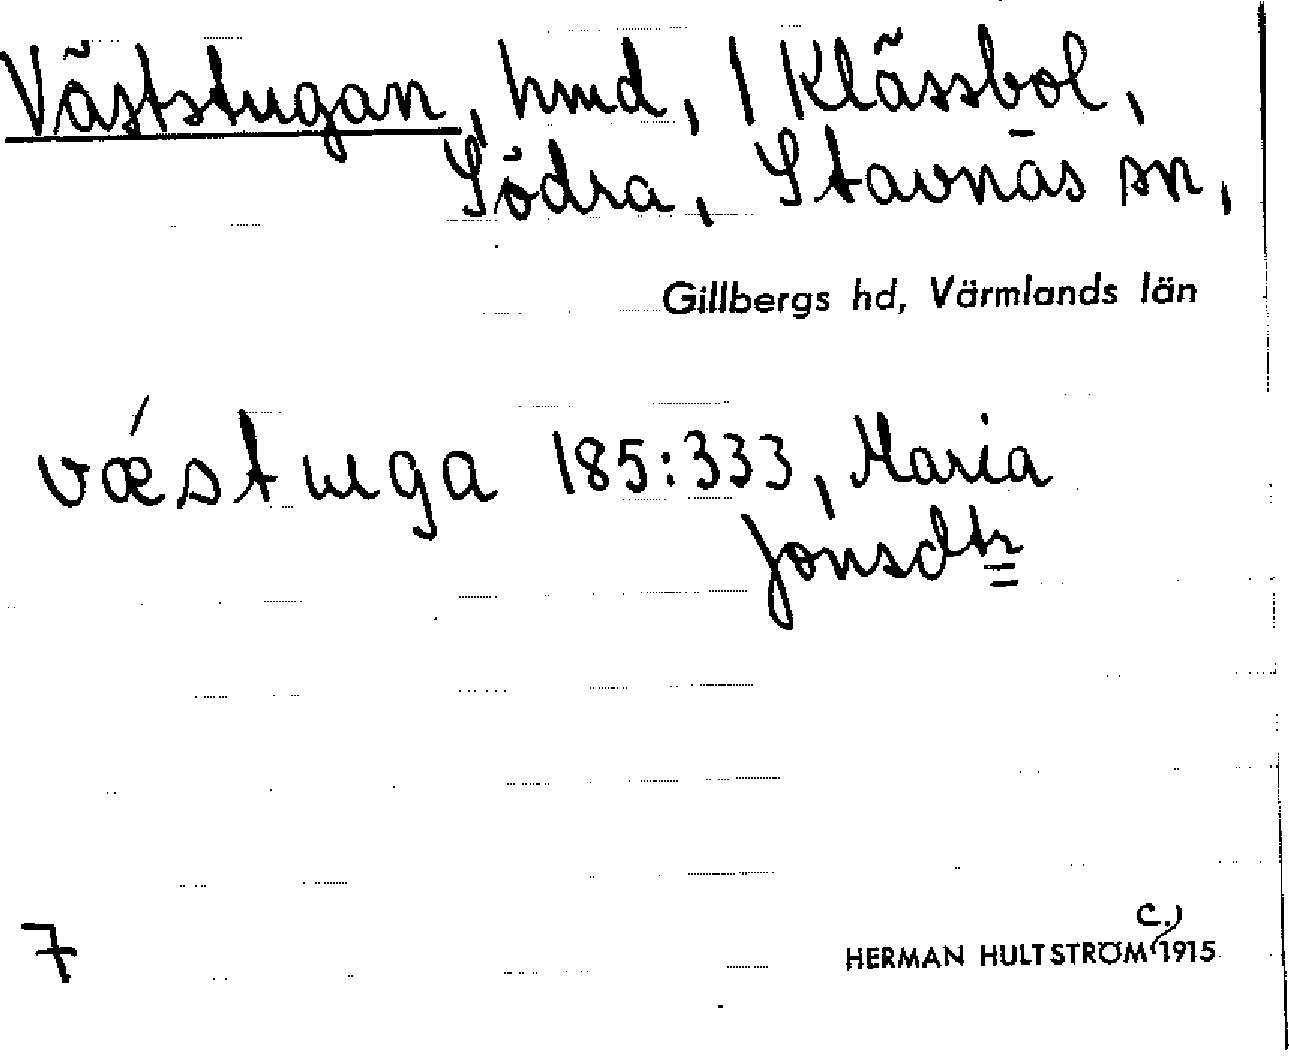 Väststugan, hmd, 1 Klässbol,
Södra, Stavnäs sn,
Gillbergs hd, Värmlands län
vǽstuga 185:333, Maria
Jonsdtr
7
c.
HERMAN HULTSTRÖM 1915